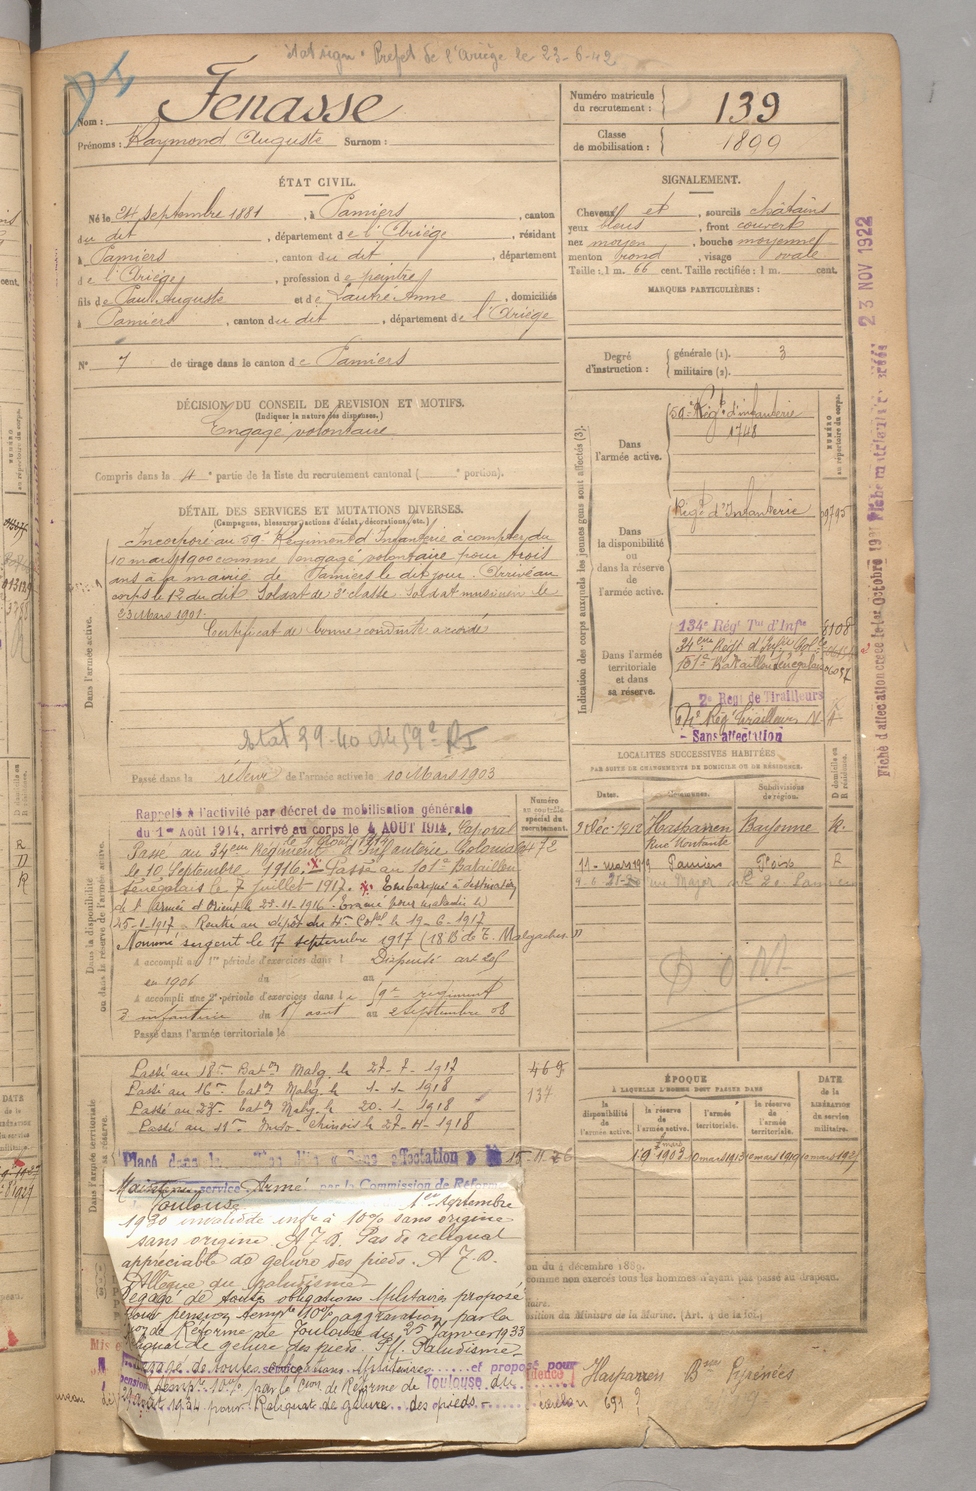 Préfet de l'Ariège le 23-6-42
Nom : Fenasse
Prénoms : Raymond Auguste Surnom :
Numéro matricule du recrutement : 139
Classe de mobilisation : 1899
ÉTAT CIVIL.
Né le 24 septembre 1881, à Pamiers, canton
du dit, département de l'Ariège, résidant
à Pamiers, canton du dit, département
de l'Ariège, profession de peintre
fils de Paul Auguste et de Lautré Anne, domiciliés
à Pamiers, canton du dit, département de l'Ariège
N° 7 de tirage dans le canton de Pamiers
SIGNALEMENT.
Cheveux et, sourcils châtains
yeux bleus, front couvert
nez moyen, bouche moyenne
menton rond, visage ovale
Taille : 1 m. 66 cent. Taille rectifiée : 1 m. cent.
MARQUES PARTICULIÈRES :
Degré d'instruction : générale (1). 3
militaire (2).
DÉCISION DU CONSEIL DE REVISION ET MOTIFS.
(Indiquer la nature des dispenses.)
Engagé volontaire
Compris dans la 4e partie de la liste du recrutement cantonal ( e portion).
DÉTAIL DES SERVICES ET MUTATIONS DIVERSES.
(Campagnes, blessures, actions d'éclat, décorations, etc.)
Dans l'armée active.
Incorporé au 59e Régiment d'Infanterie à compter du
10 mars 1900 comme engagé volontaire pour trois
ans à la mairie de Pamiers le dit jour. Arrivé au
corps le 12 du dit Soldat de 2e classe. Soldat musicien le
23 Mars 1901.
Certificat de bonne conduite accordé
Etat 39-40 59e RI
Passé dans la réserve de l'armée active le 10 Mars 1903
Indication des corps auxquels les jeunes gens sont affectés (3).
NUMÉRO au répertoire du corps.
Dans l'armée active.
59e Régt d'infanterie
1748
Dans la disponibilité ou dans la réserve de l'armée active.
Régt d'Infanterie
Dans l'armée territoriale et dans sa réserve.
134e Régt Tal d'Infie 8108
34eme Régt d'Infie Colle
101e Bataillon Sénégalais
2e Régt de Tirailleurs
Régt Tirailleurs
Sans affectation
Fiche d'affectation créée le 1er Octobre
Fiche matricule créée 23 NOV 1922
LOCALITÉS SUCCESSIVES HABITÉES
PAR SUITE DE CHANGEMENTS DE DOMICILE OU DE RÉSIDENCE.
Dates. Communes. Subdivisions de région. D domicile ou R résidence.
Déc-1912 Hasparren Bayonne R.
11-mars 1919 Pamiers Foix R
D O M
Dans la disponibilité ou dans la réserve de l'armée active.
Numéro au contrôle spécial du recrutement.
Rappelé à l'activité par décret de mobilisation générale
du 1er Août 1914, arrivé au corps le 4 AOUT 1914, Caporal
Passé au 34eme Régiment d'Infanterie Coloniale 472
le 10 Septembre 1916. Passé au 101e Bataillon
Sénégalais le 7 juillet 1917. Embarqué à destination
de l'armée d'Orient le 1916. Evacué pour maladie le
25-1-1917. Rentré au dépôt du 4e Colal le 19-6-1917
Nommé sergent le 17 septembre 1917 (18 B de T. Malgaches.)
A accompli une 1re période d'exercices dans l Dispensé art
en 1906 du au
A accompli une 2e période d'exercices dans le 59e régiment
d'infanterie du 17 août au 2 septembre 08
Passé dans l'armée territoriale le
Dans l'armée territoriale
Passé au 18e Baton Malg. le 27-7-1917 469
Passé au 16e baton Malg. le 1-1-1918 137
Passé au 23e baton Malg. le 20-1-1918
Passé au Indo-Chinois le 27-11-1918
ÉPOQUE
À LAQUELLE L'HOMME DOIT PASSER DANS
la disponibilité de l'armée active.
la réserve de l'armée active.
l'armée territoriale.
la réserve de l'armée territoriale.
DATE de la LIBÉRATION du service militaire.
mars 1903 10 mars 1913 10 mars 1919 10 mars 1927
Placé dans la "Sans affectation"
Maintenu service Armé par la Commission de Réforme
Toulouse 1er septembre
1920 invalidité infre à 10% sans origine
sans origine A.7.D. Pas de reliquat
appréciable de gelure des pieds. A.7.D.
Allègue du Paludisme
Dégagé de toutes obligations Militaires proposé
pour pension tempre 10% aggravation par la
Con de Réforme de Toulouse du 25 Janvier 1933
Reliquat de gelure des pieds. Paludisme
Dégagé de toutes obligations Militaires et proposé pour
pension tempre 10% par la Con de Réforme de Toulouse du
août 1934 pour Reliquat de gelure des pieds
Hasparren Bses Pyrénées
du 4 décembre 1889.
comme non exercés tous les hommes n'ayant pas passé au drapeau.
du Ministre de la Marine. (Art. 4 de la loi.)